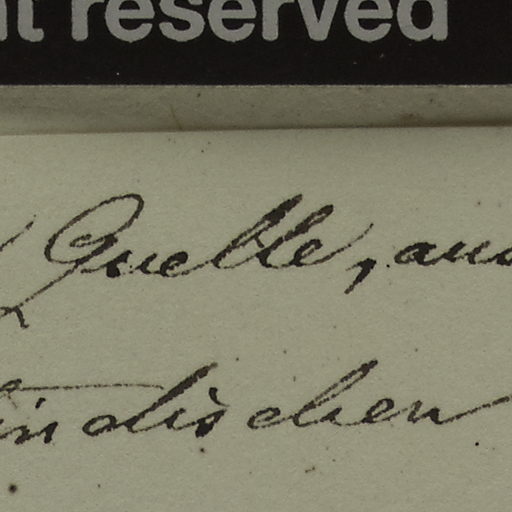 reserved
Quelle, aus
indischen